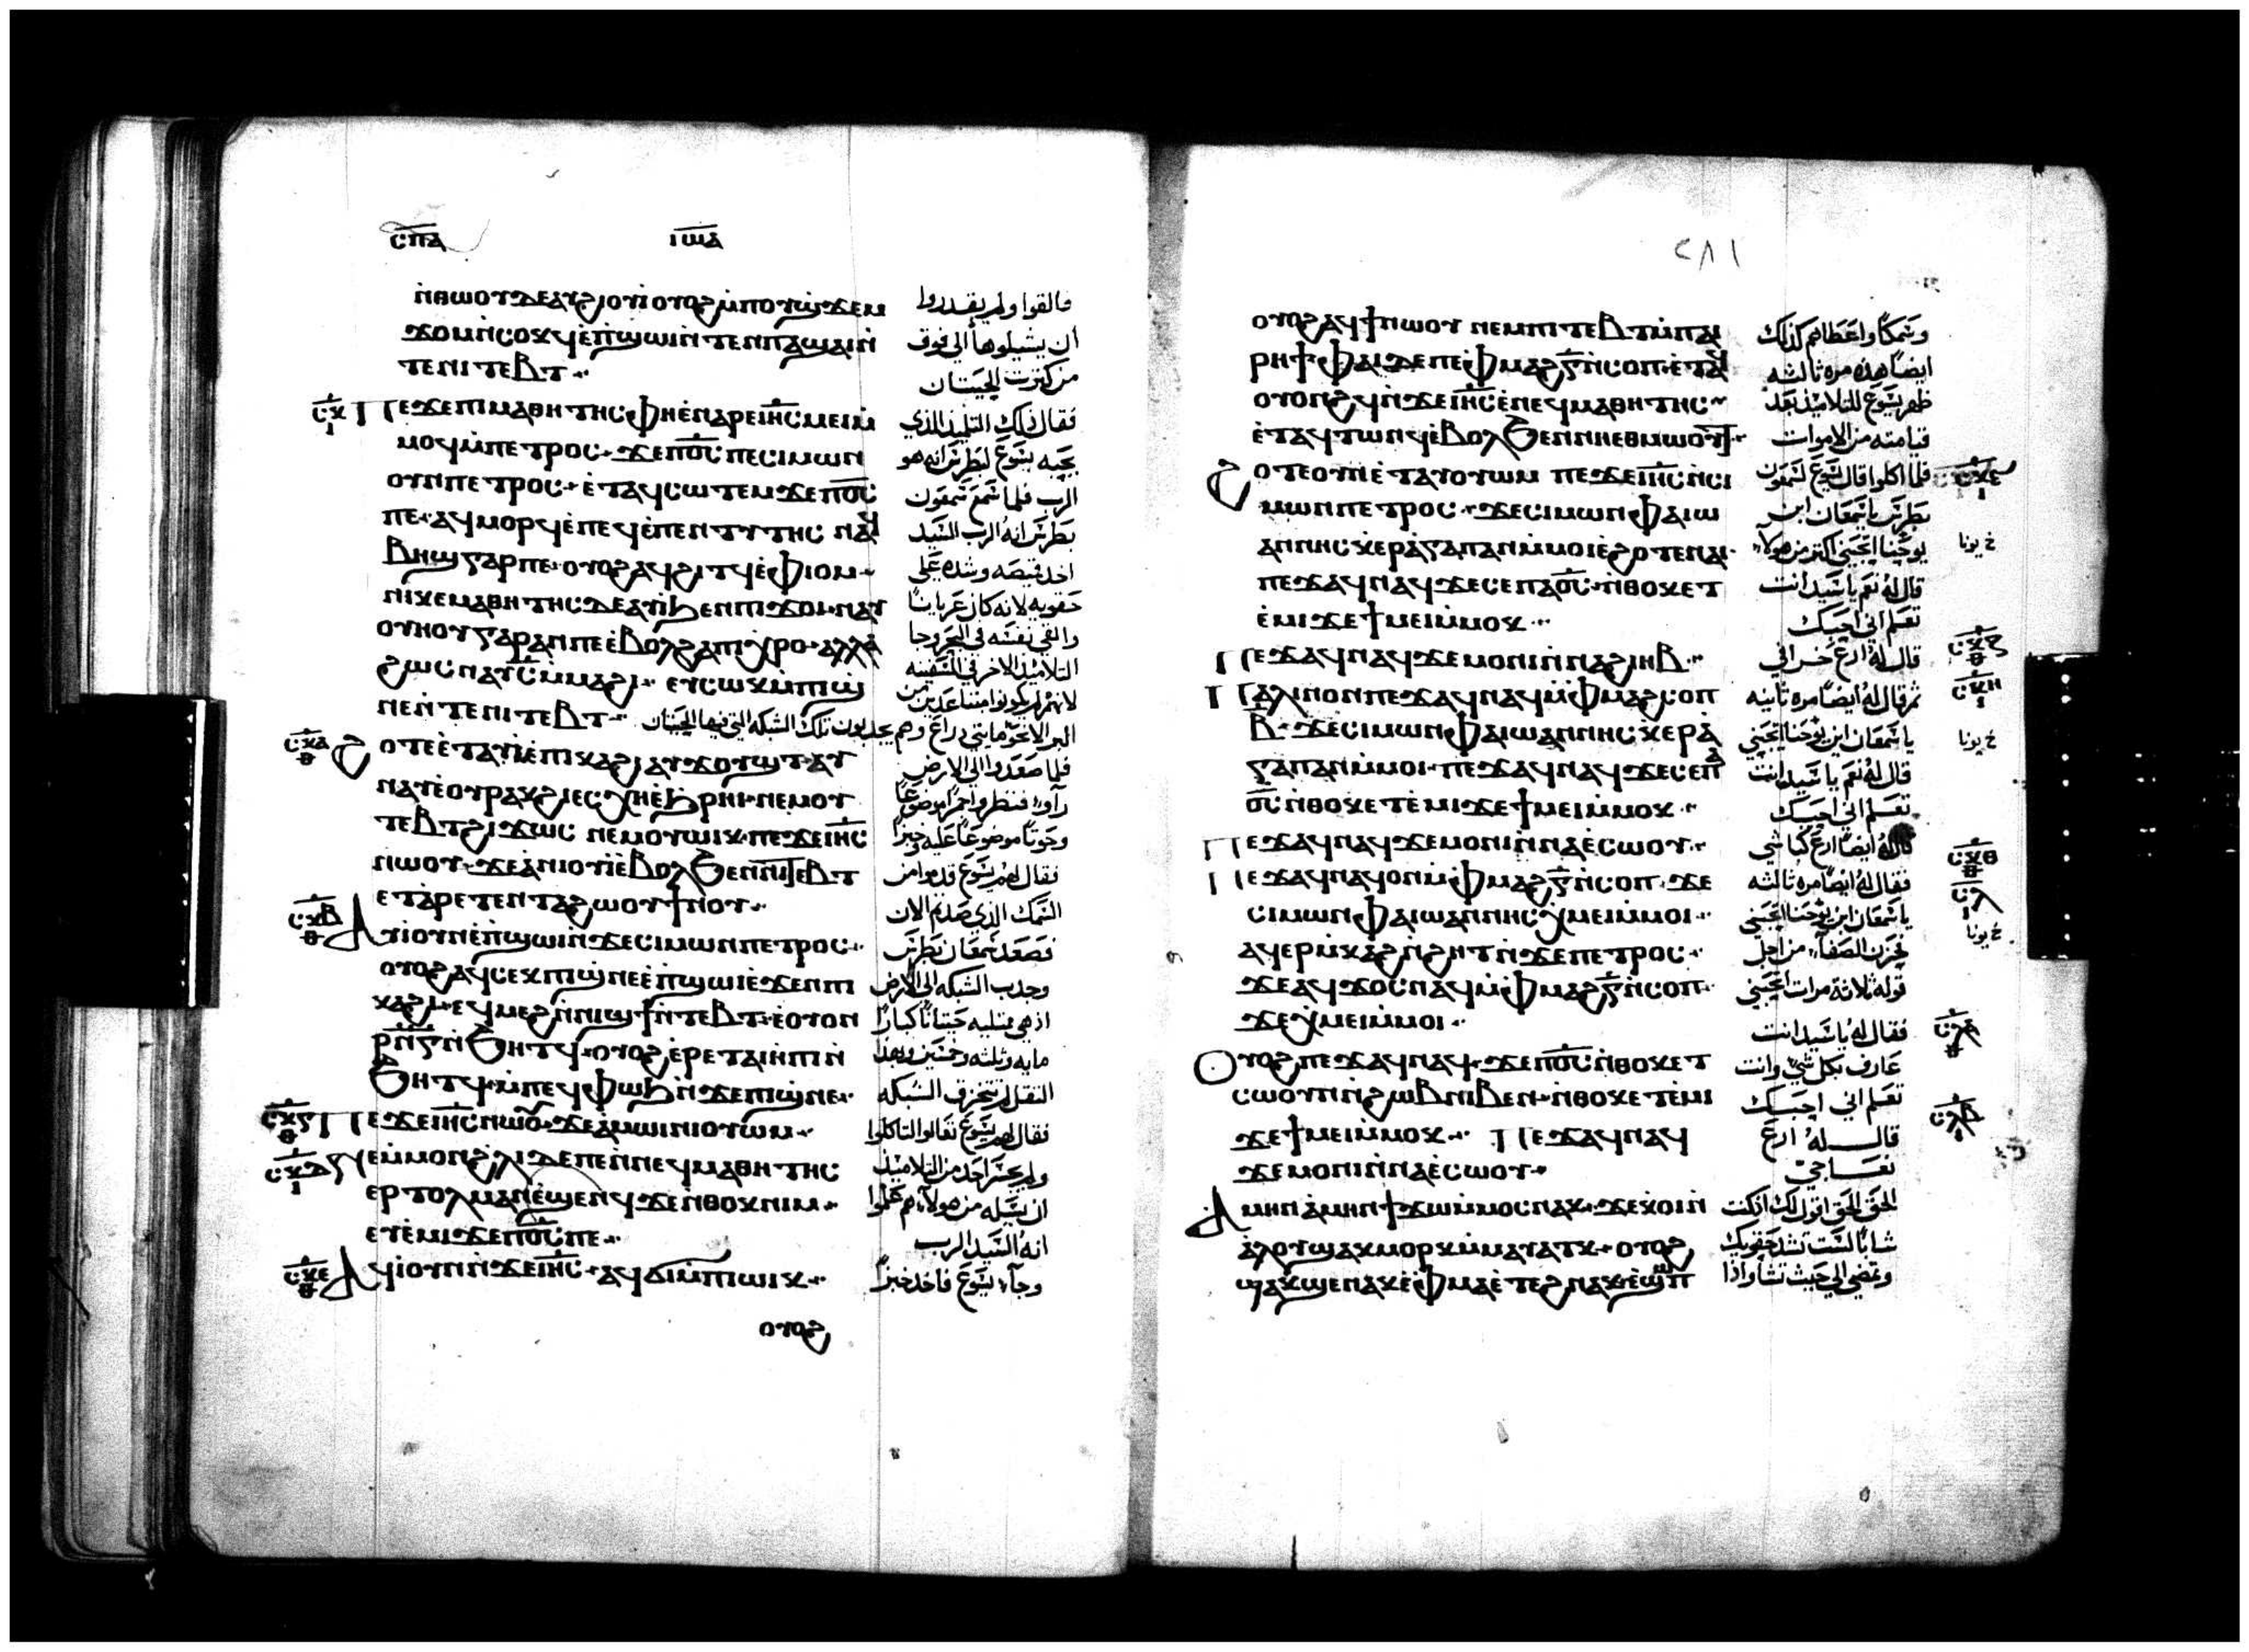 ⲥⲡⲁ
ⲓⲱⲁ
ⲛ̇ⲑⲱⲟⲩ ⲇⲉ ⲁⲩϩⲓⲟⲩⲓ ⲟⲩⲟϩ ⲙ̇ⲡⲟⲩϣ̇ϫⲉⲙ
ϫⲟⲙ ⲛ̇ⲥⲟⲕϥ ⲉ̇ⲡ̇ϣⲱⲓ ⲛ̇ⲧⲉⲛ ⲡⲁϣⲁⲓ ⲛ̇
ⲧⲉ ⲛⲓ ⲧⲉⲃⲧ
ⲡⲉϫⲉ ⲡⲓⲙⲁⲑⲏⲧⲏⲥ ⲫⲏ ⲉ̇ⲛⲁⲣⲉ ⲓⲏ̅ⲥ̅ ⲙⲉⲓ ⲙ̇
ⲙⲟϥ ⲙ̇ⲡⲉⲧⲣⲟⲥ ϫⲉ ⲡⲟ̅ⲥ̅ ⲡⲉ ⲥⲓⲙⲱⲛ
ⲟⲩⲛ ⲡⲉⲧⲣⲟⲥ ⲉ̇ⲧⲁϥⲥⲱⲧⲉⲙ ϫⲉ ⲡⲟ̅ⲥ̅
ⲡⲉ ⲁϥⲙⲟⲣϥ ⲉ̇ⲡⲉϥⲉ̇ⲡⲉⲛⲧⲩⲧⲏⲥ ⲛⲁϥ
ⲃⲏϣ ⲅⲁⲣ ⲡⲉ ⲟⲩⲟϩ ⲁϥϩⲓⲧϥ ⲉ̇ⲫⲓⲟⲙ
ⲛⲓⲕⲉⲙⲁⲑⲏⲧⲏⲥ ⲇⲉ ⲁⲩⲓ̇ ϧⲉⲛ ⲡⲓϫⲟⲓ ⲛⲁⲩ
ⲟⲩⲏⲟⲩ ⲅⲁⲣ ⲁⲛ ⲡⲉ ⲉ̇ⲃⲟⲗϩⲁ ⲡⲓⲭⲣⲟ ⲁⲗⲗⲁ
ϩⲱⲥ ⲛⲁⲩ ⲥ̅ ⲙ̇ⲙⲁϩⲓ ⲉⲩⲥⲱⲕ ⲙ̇ⲡⲓϣ̇
ⲛⲉ ⲛ̇ⲧⲉ ⲛⲓ ⲧⲉⲃⲧ
ϩⲟⲧⲉ ⲉ̇ⲧⲁⲩⲓ̇ ⲉ̇ⲡⲓⲕⲁϩⲓ ⲁⲩϫⲟⲩϣⲧ ⲁⲩ
ⲛⲁⲩ ⲉ̇ⲟⲩⲣⲁⲕϩⲓ ⲉⲥⲭⲏ ⲉ̇ϧⲣⲏⲓ ⲛⲉⲙ ⲟⲩ
ⲧⲉⲃⲧ ϩⲓϫⲱⲥ ⲛⲉⲙ ⲟⲩⲱⲓⲕ ⲡⲉϫⲉ ⲓⲏ̅ⲥ̅
ⲛⲱⲟⲩ ϫⲉ ⲁ̇ⲛⲓⲟⲩⲓ̇ ⲉ̇ⲃⲟⲗϧⲉⲛ ⲛⲓⲧⲉⲃⲧ
ⲉⲧⲁ̇ⲣⲉⲧⲉⲛⲧⲁϩⲱⲟⲩ ϯⲛⲟⲩ
ⲁϥⲓ̇ ⲟⲩⲛ ⲉ̇ⲡ̇ϣⲱⲓ ⲛ̇ϫⲉ ⲥⲓⲙⲱⲛ ⲡⲉⲧⲣⲟⲥ
ⲟⲩⲟϩ ⲁϥⲥⲉⲕ ⲡⲓϣ̇ⲛⲉ ⲉ̇ⲡ̇ϣⲱⲓ ⲉ̇ϫⲉⲛ ⲡⲓ
ⲕⲁϩⲓ ⲉϥⲙⲉϩ ⲛ̇ⲛⲓϣϯ ⲛ̇ⲧⲉⲃⲧ ⲉ̇ⲟⲩⲟⲛ
ⲣ̅ⲛ̅ⲅ̅ ⲛ̇ϧⲏⲧϥ ⲟⲩⲟϩ ⲉ̇ⲣⲉ ⲧⲁⲓ ⲏ̇ⲡⲓ ⲛ̇
ϧⲏⲧϥ ⲙ̇ⲡⲉϥⲫⲱϧ ⲛ̇ϫⲉ ⲡⲓϣ̇ⲛⲉ
ⲡⲉϫⲉ ⲓⲏ̅ⲥ̅ ⲛⲱⲟⲩ ϫⲉ ⲁ̇ⲙⲱⲓⲛⲓ ⲟⲩⲱⲙ
ⲛⲉ ⲙ̇ⲙⲟⲛ ϩⲗⲓ ⲇⲉ ⲡⲉ ⲛ̇ⲛⲉϥⲙⲁⲑⲏⲧⲏⲥ
ⲉⲣⲧⲟⲗⲙⲁⲛ ⲉ̇ϣⲉⲛϥ ϫⲉ ⲛ̇ⲑⲟⲕ ⲛⲓⲙ
ⲉⲩⲉ̇ⲙⲓ ϫⲉ ⲡⲟ̅ⲥ̅ ⲡⲉ
ⲁϥⲓ̇ ⲟⲩⲛ ⲛ̇ϫⲉ ⲓⲏ̅ⲥ̅ ⲁϥϭⲓ ⲙ̇ⲡⲓⲱⲓⲕ
ⲟⲩⲟϩ
فالقوا ولم يقدروا
أن يشيلوها الي فوق
من كثرت الحيتان
فقال ذلك التلميذ الذي
يحبه يسوع لبطرس انه هو
الرب فلما سمع سمعون
بطرس انه الرب السيد
اخد قميصه وشده علي
حقويه لانه كان عريانًا
والقي نفسه في البحر وجا
التلاميذ الاخر في السفينه
لانهم لم يكونوا متباعدين من
البر الا نحو مايتي دراع وهم يجدبون تلك الشبكه التي فيها الحيتان
فلما صعدوا الي الارض
رآوا فنظروا جمرًا موضوعًا
وحوتًا موضوعًا عليه وخبزًا
فقال لهم يسوع قدموا من
السمك الذي صدتم الان
فصعد سمعان بطرس
وجدب الشبكه الي الارض
اذ هي ممتليه حيتانًا كبارًا
مايه وثلثه وخمسين وبهذا
الثقل لم تتخرق الشبكه
فقال لهم يسوع تعالوا لتاكلوا
ولم يجسر احد من التلاميذ
ان يسله من هو لانهم علموا
انه السيد الرب
وجآ يسوع فاخد خبزًا
٢٨١
ⲟⲩⲟϩ ⲁϥϯ ⲛⲱⲟⲩ ⲛⲉⲙ ⲡⲓ ⲧⲉⲃⲧ ⲙ̇ⲡⲁⲓ
ⲣⲏϯ ⲫⲁⲓ ⲇⲉ ⲡⲉ ⲫⲙⲁϩ ⲅ̅ ⲛ̇ⲥⲟⲡ ⲉ̇ⲧⲁϥ
ⲟⲩⲟⲛϩϥ ⲛ̇ϫⲉ ⲓⲏ̅ⲥ̅ ⲉ̇ⲛⲉϥⲙⲁⲑⲏⲧⲏⲥ
ⲉ̇ⲧⲁϥⲧⲱⲛϥ ⲉ̇ⲃⲟⲗϧⲉⲛ ⲛⲏⲉⲑⲙⲱⲟⲩⲧ
ϩⲟⲧⲉ ⲟⲩⲛ ⲉ̇ⲧⲁⲩⲟⲩⲱⲙ ⲡⲉϫⲉ ⲓⲏ̅ⲥ̅ ⲛ̇ⲥⲓ
ⲙⲱⲛ ⲡⲉⲧⲣⲟⲥ ϫⲉ ⲥⲓⲙⲱⲛ ⲫⲁ ⲓⲱ
ⲁⲛⲛⲏⲥ ⲭ̇ⲉⲣⲁ̇ⲅⲁⲡⲁⲛ ⲙ̇ⲙⲟⲓ ⲉ̇ϩⲟⲧⲉ ⲛⲁⲓ
ⲡⲉϫⲁϥ ⲛⲁϥ ϫⲉ ⲥⲉ ⲡⲁⲟ̅ⲥ̅ ⲛ̇ⲑⲟⲕ ⲉⲧ
ⲉ̇ⲙⲓ ϫⲉ ϯⲙⲉⲓ ⲙ̇ⲙⲟⲕ
ⲡⲉϫⲁϥ ⲛⲁϥ ϫⲉ ⲙⲟⲛⲓ ⲛ̇ⲛⲁϩⲓⲏⲃ
ⲡⲁⲗⲓⲛ ⲟⲛ ⲡⲉϫⲁϥ ⲛⲁϥ ⲙ̇ⲫⲙⲁϩ ⲥⲟⲡ
ⲃ̅ ϫⲉ ⲥⲓⲙⲱⲛ ⲫⲁ ⲓⲱⲁⲛⲛⲏⲥ ⲭ̇ⲉⲣⲁ̇
ⲅⲁⲡⲁⲛ ⲙ̇ⲙⲟⲓ ⲡⲉϫⲁϥ ⲛⲁϥ ϫⲉ ⲥⲉ ⲡⲁ
ⲟ̅ⲥ̅ ⲛ̇ⲑⲟⲕ ⲉⲧⲉ̇ⲙⲓ ϫⲉ ϯⲙⲉⲓ ⲙ̇ⲙⲟⲕ
ⲡⲉϫⲁϥ ⲛⲁϥ ϫⲉ ⲙⲟⲛⲓ ⲛ̇ⲛⲁⲉ̇ⲥⲱⲟⲩ
ⲡⲉϫⲁϥ ⲛⲁϥ ⲟⲛ ⲙ̇ⲫⲙⲁϩ ⲅ̅ ⲛ̇ⲥⲟⲡ ϫⲉ
ⲥⲓⲙⲱⲛ ⲫⲁ ⲓⲱⲁⲛⲛⲏⲥ ⲭ̇ⲙⲉⲓ ⲙ̇ⲙⲟⲓ
ⲁϥⲉⲣⲙ̇ⲕⲁϩ ⲛ̇ϩⲏⲧ ⲛ̇ϫⲉ ⲡⲉⲧⲣⲟⲥ
ϫⲉ ⲁϥϫⲟⲥ ⲛⲁϥ ⲙ̇ⲫⲙⲁϩ ⲅ̅ ⲛ̇ⲥⲟⲡ
ϫⲉ ⲭ̇ⲙⲉⲓ ⲙ̇ⲙⲟⲓ
ⲟⲩⲟϩ ⲡⲉϫⲁϥ ⲛⲁϥ ϫⲉ ⲡⲟ̅ⲥ̅ ⲛ̇ⲑⲟⲕ ⲉⲧ
ⲥⲱⲟⲩⲛ ⲛ̇ϩⲱⲃ ⲛⲓⲃⲉⲛ ⲛ̇ⲑⲟⲕ ⲉⲧⲉ̇ⲙⲓ
ϫⲉ ϯⲙⲉⲓ ⲙ̇ⲙⲟⲕ ⲡⲉϫⲁϥ ⲛⲁϥ
ϫⲉ ⲙⲟⲛⲓ ⲛ̇ⲛⲁⲉ̇ⲥⲱⲟⲩ
ⲁⲙⲏⲛ ⲁ̇ⲙⲏⲛ ϯϫⲱ ⲙ̇ⲙⲟⲥ ⲛⲁⲕ ϫⲉ ⲉ̇ⲕⲟⲓ ⲛ̇
ⲁ̇ⲗⲟⲩ ϣⲁⲕⲙⲟⲣⲕ ⲙ̇ⲙⲁⲩⲁⲧⲕ ⲟⲩⲟϩ
ϣⲁⲕϣⲉ ⲛⲁⲕ ⲉ̇ⲫⲙⲁ ⲉ̇ⲧⲉϩⲛⲁⲕ ⲉ̇ϣⲱⲡ
وسمكًا واعطاهم كذلك
ايضًا هذه مره ثالثه
ظهر يسوع للتلاميذ بعد
قيامته من الاموات
فلما اكلوا قال يسوع لسمعون
بطرس يا سمعان ابن
يوحنا اتحبني اكثر من هولآ
قال له نعم يا سيد انت
تعلم اني احبك
قال له ارع خرافي
ثم قال له ايضًا مره ثانيه
يا سمعان ابن يوحنا اتحبني
قال له نعم يا سيد انت
تعلم اني احبك
قال له ايضًا ارع كباشي
فقال له ايضًا مره ثالثه
يا سمعان ابن يوحنا اتحبني
فحزن الصفآ من اجل
قوله ثلاثة مرات اتحبني
فقال له يا سيد انت
عارف بكل شي وانت
تعلم اني احبك
قال له ارع
نعاجي
الحق الحق اقول لك اذ كنت
شابًا لست تشد حقويك
وتمضي الي حيث تشا واذا
خ يونا
خ يونا
خ يونا